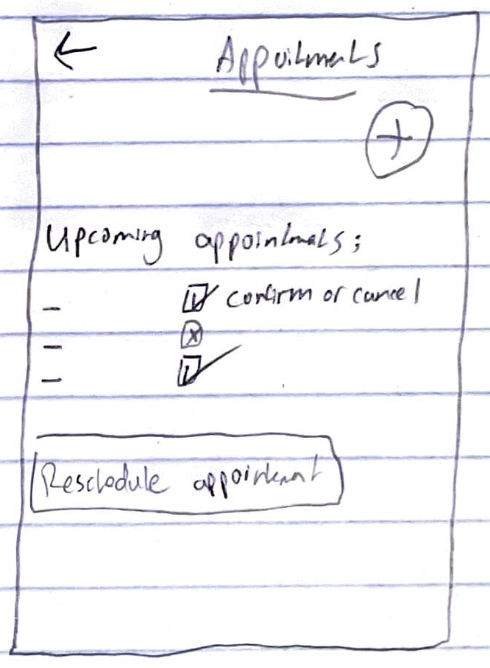 Appoitments
Upcoming appointmats;
confirm or cancel
Reschedule appointment